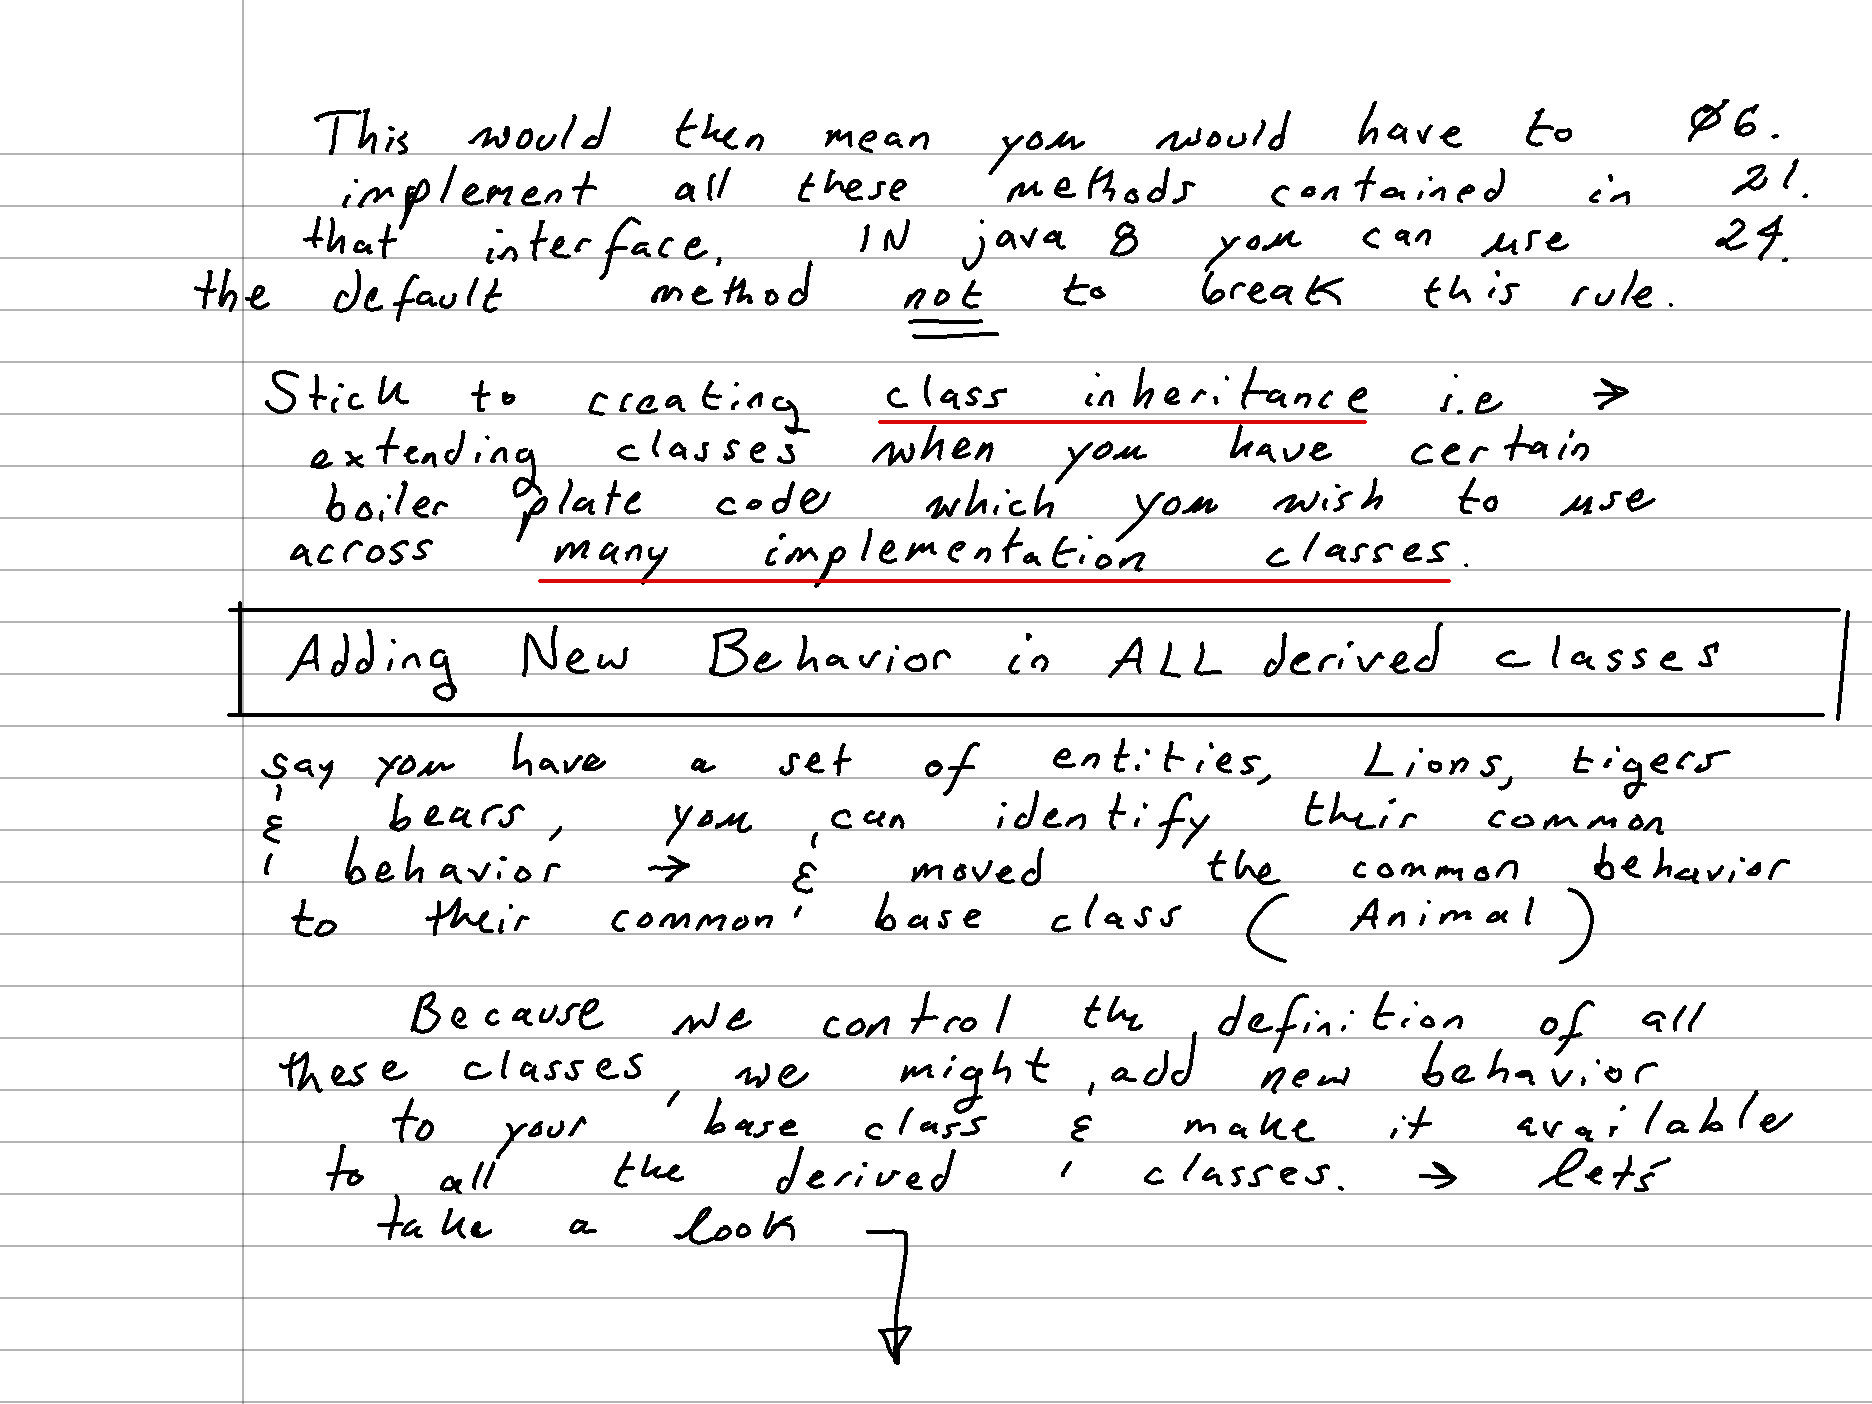 This would then mean you would have to Ø6.
implement all these methods contained in 21.
that interface, IN java 8 you can use 24.
the default method not to break this rule.
Stick to creating class inheritance i.e →
extending classes when you have certain
boiler plate code which you wish to use
across many implementation classes.
Adding New Behavior in ALL derived classes
say you have a set of entities, Lions, tigers
& bears, you can identify their common
behavior → & moved the common behavior
to their common base class (Animal)
Because we control the definition of all
these classes, we might add new behavior
to your base class & make it available
to all the derived classes. → lets
take a look